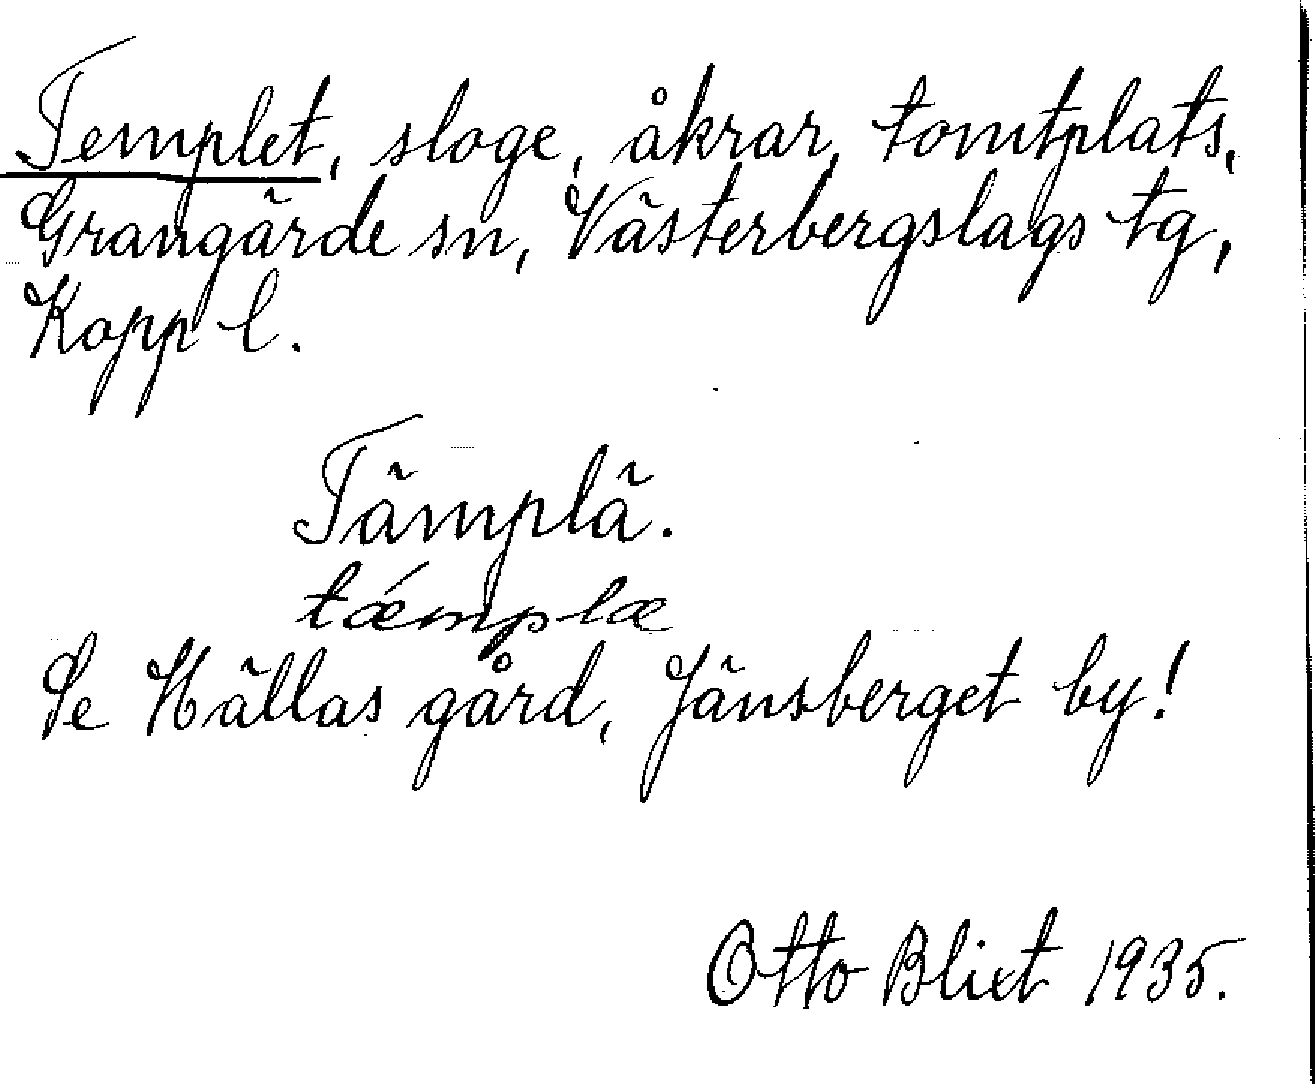 Templet, sloge, åkrar, tomtplats,
Grangärde sn, Västerbergslags tg,
Kopp l.
Tämplä.
tǽmplæ
Se Hällas gård, Jänsberget by!
Otto Blixt 1935.